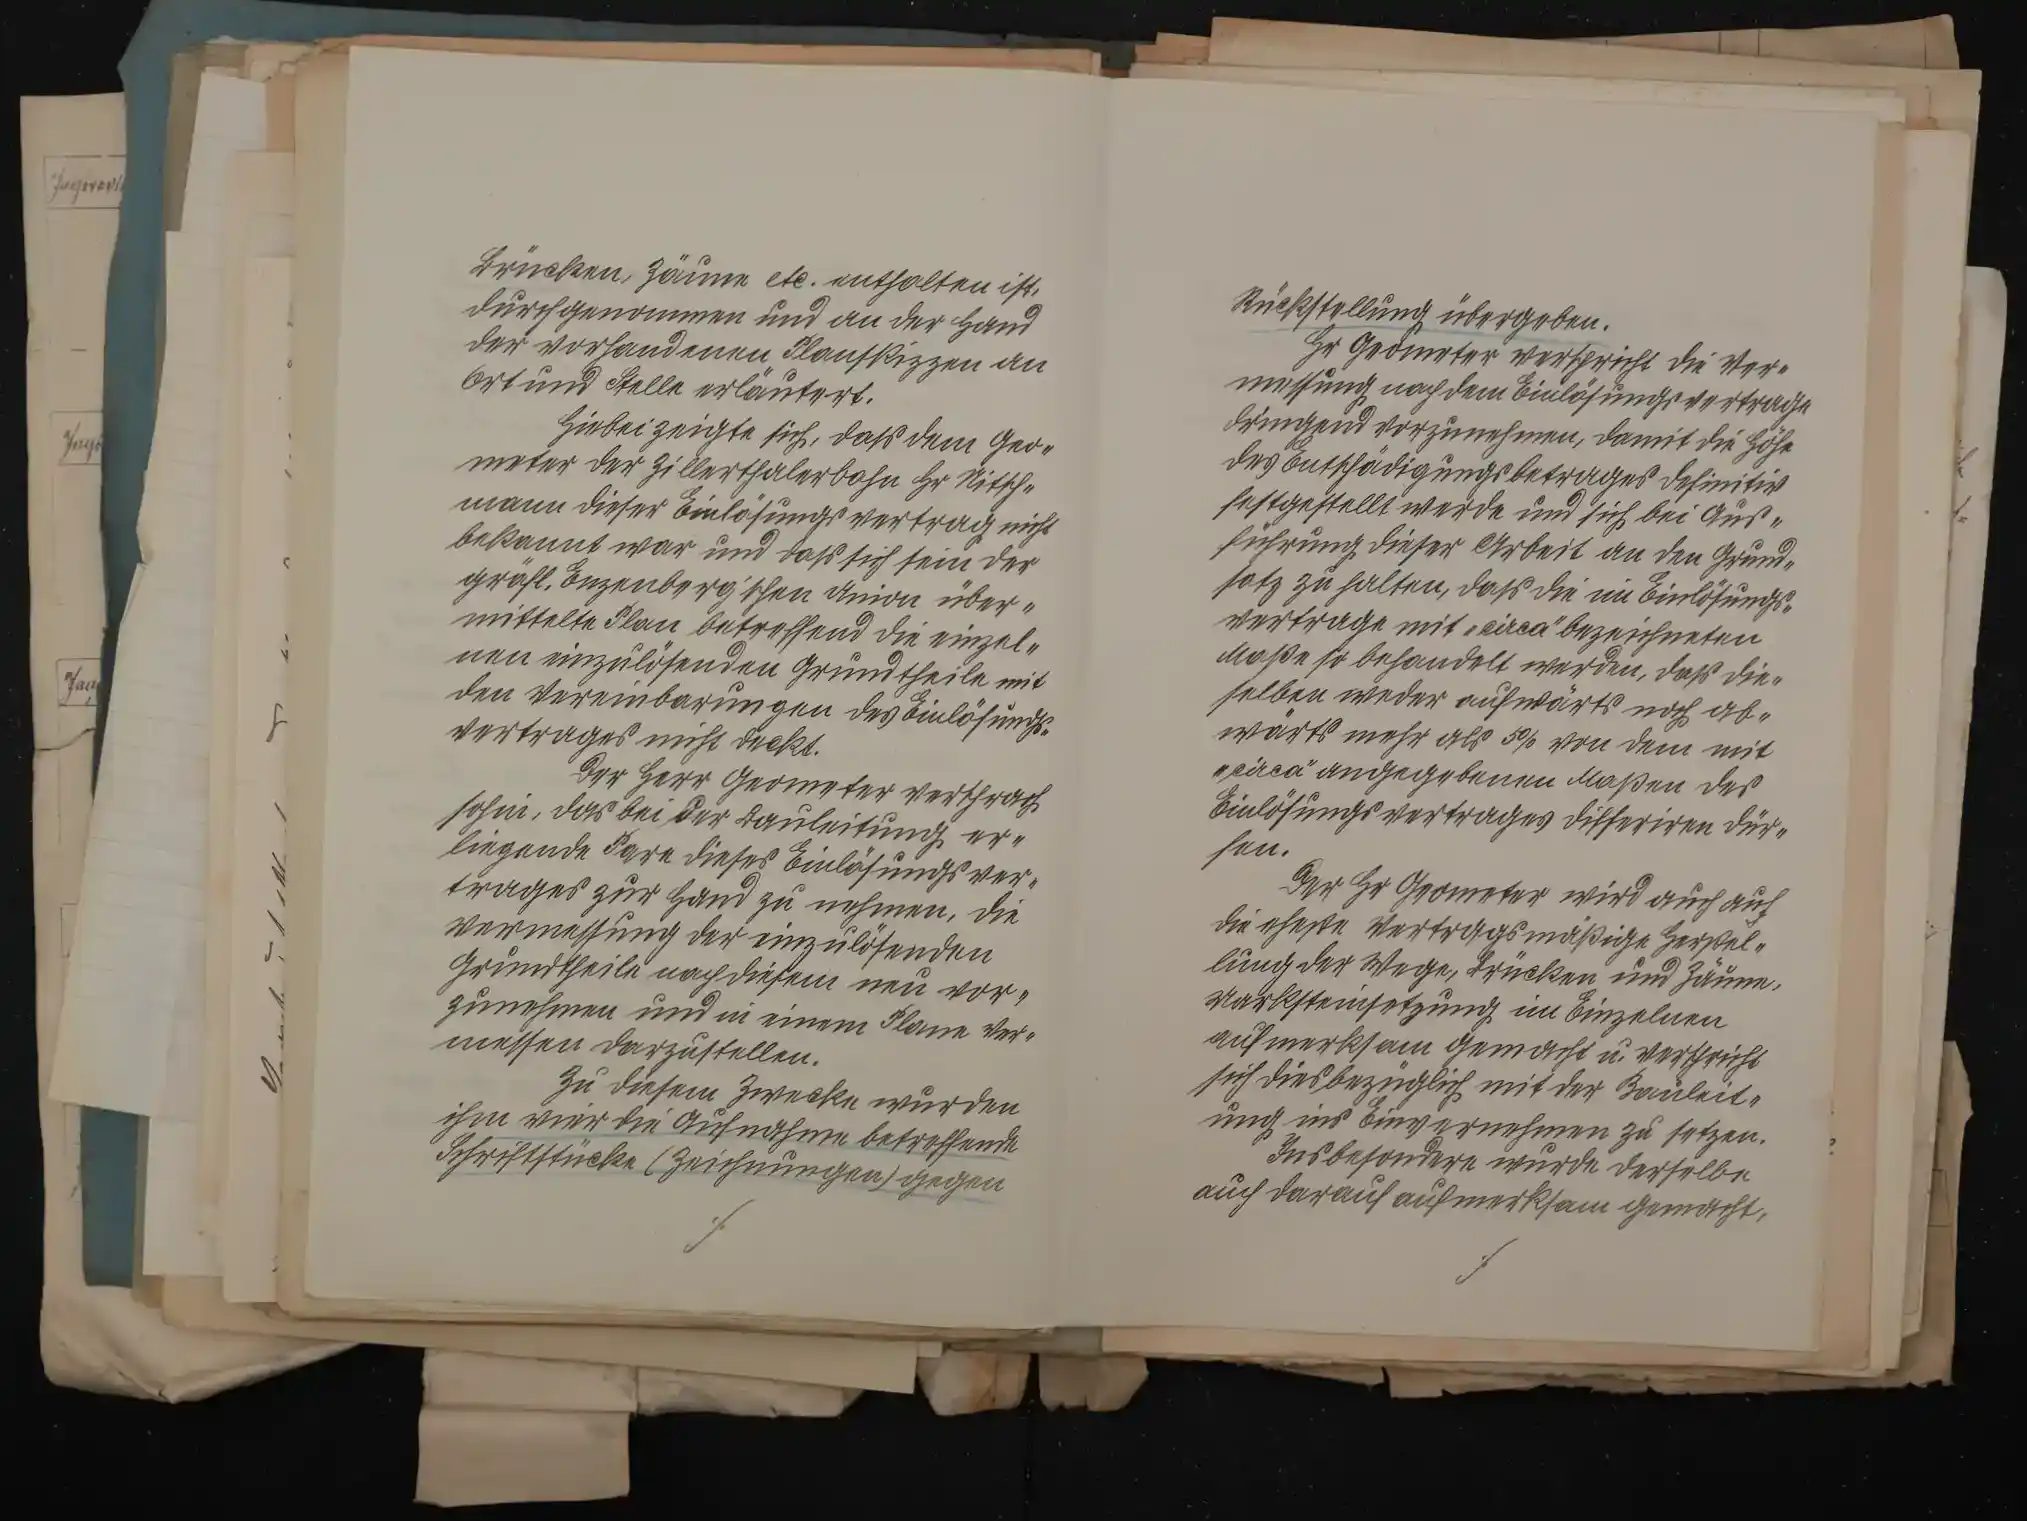 Brücken, Zäune etc. enthalten ist,
durchgenommen und an der Hand
der vorhandenen Planskizzen an
Ort und Stelle erläutert.
Hiebei zeigte sich, dass dem Geo-
meter der Zillerthalerbahn Hr Nitsch-
mann dieser Einlösungsvertrag nicht
bekannt war und dass sich sein der
gräfl. Enzenberg'schen Union über-
mittelte Plan betreffend die einzel-
nen einzulösenden Grundtheile mit
den Vereinbarungen des Einlösungs-
vertrages nicht deckt.
Der Herr Geometer versprach
sohin, das bei der Bauleitung er-
liegende Pare dieses Einlösungsver-
trages zur Hand zu nehmen, die
Vermessung der einzulösenden
Grundtheile nach diesem neu vor-
zunehmen und in einem Plane ver-
messen darzustellen.
Zu diesem Zwecke wurden
ihm vier die Aufnahme betreffende
Schriftstücke (Zeichnungen) gegen
./.
Rückstellung übergeben.
Hr Geometer verspricht die Ver-
messung nach dem Einlösungsvertrage
dringend vorzunehmen, damit die Höhe
des Entschädigungsbetrages definitiv
festgestellt werde und sich bei Aus-
führung dieser Arbeit an den Grund-
satz zu halten, dass die im Einlösungs-
vertrage mit „circa" bezeichneten
Maße so behandelt werden, dass die-
selben weder aufwärts noch ab-
wärts mehr als 5% von dem mit
„circa" angegebenen Maßen des
Einlösungsvertrages differiren dür-
fen.
Der Hr Geometer wird auch auf
die eheste vertragsmäßige Herstel-
lung der Wege, Brücken und Zäune,
Marksteinsetzung im Einzelnen
aufmerksam gemacht u. verspricht
sich diesbezüglich mit der Bauleit-
ung ins Einvernehmen zu setzen.
Insbesondere wurde derselbe
auch darauf aufmerksam gemacht,
./.